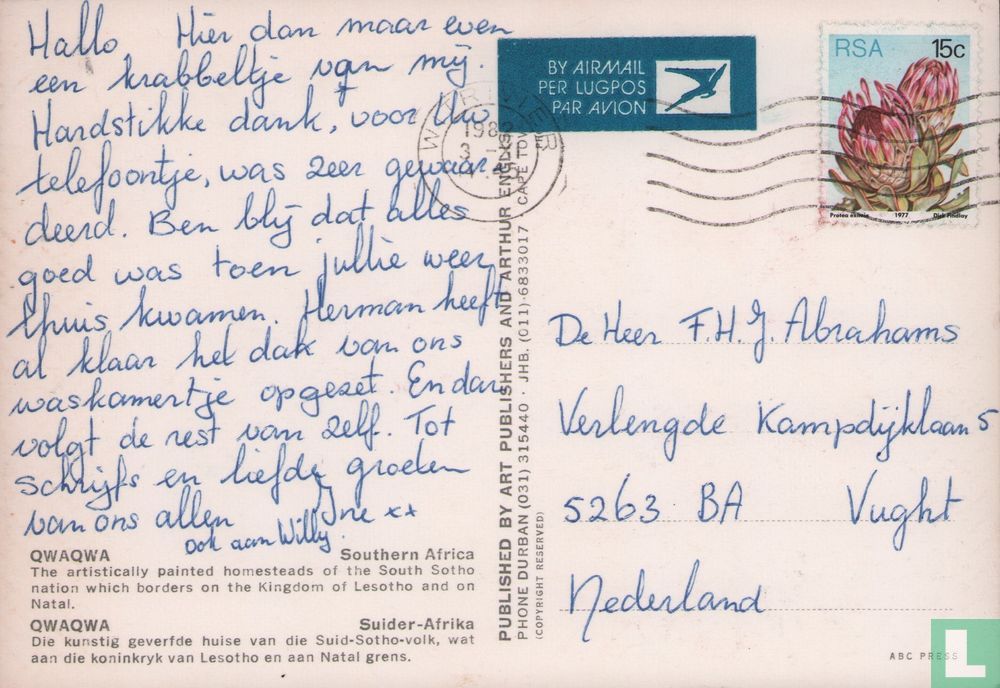 Hallo Hier dan maar even
een krabbeltje van mij.
Hardstikke dank, voor Uw
telefoontje, was zeer gewaar-
deerd. Ben blij dat alles
goed was toen jullie weer
thuis kwamen. Herman heeft
al klaar het dak van ons
waskamertje opgezet. En dan
volgt de rest van zelf. Tot
schrijfs en liefde groeten
van ons allen Ine xx
Ook aan Willy.
QWAQWA Southern Africa
The artistically painted homesteads of the South Sotho
nation which borders on the Kingdom of Lesotho and on
Natal.
QWAQWA Suider-Afrika
Die kunstig geverfde huise van die Suid-Sotho-volk, wat
aan die koninkryk van Lesotho en aan Natal grens.
PUBLISHED BY ART PUBLISHERS AND ARTHUR ENGLISH
PHONE DURBAN (031) 315440 · JHB. (011) 6833017 · CAPE TOWN
(COPYRIGHT RESERVED)
BY AIRMAIL
PER LUGPOS
PAR AVION
RSA 15c
Protea eximia 1977 Dick Findlay
De Heer F.H.J. Abrahams
Verlengde Kampdijklaan 5
5263 BA Vught
Nederland
ABC PRESS
L